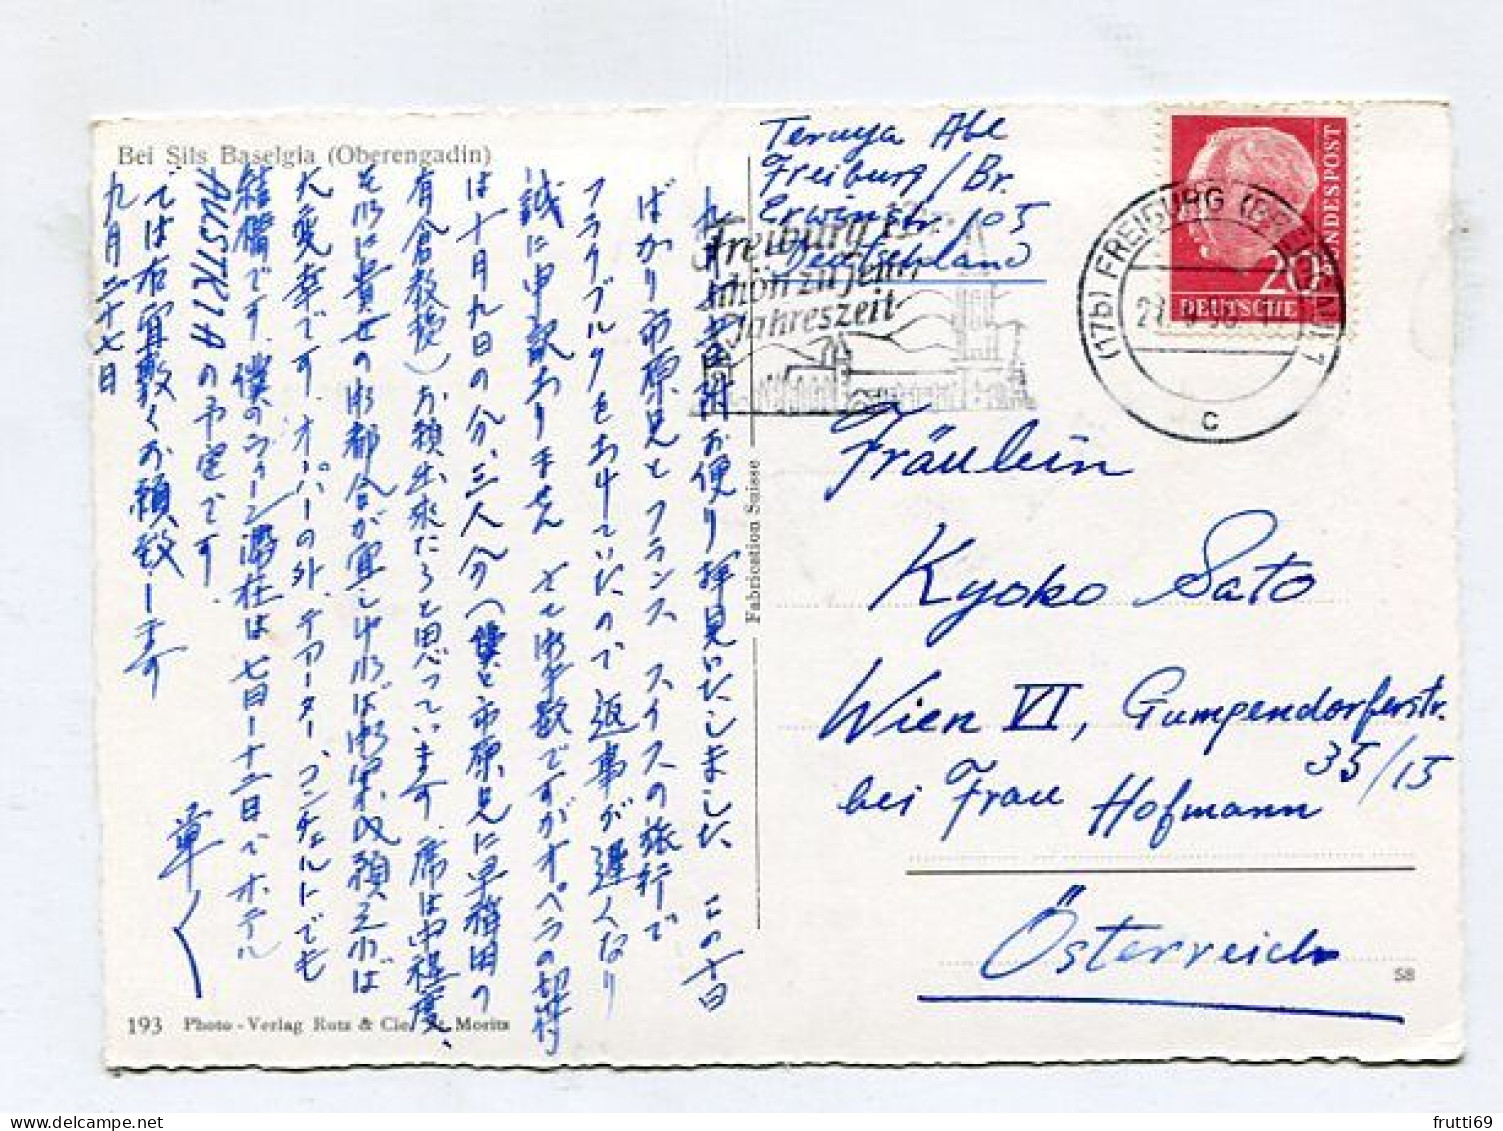 Bei Sils Baselgia (Oberengadin)
Teruya Abe
Freiburg / Br.
Erwinstr. 105
Deutschland
Freiburg i. Br.
schön zu jeder
Jahreszeit
(17b) FREIBURG (BREISGAU) 1
c
DEUTSCHE BUNDESPOST
20
九月 日附お便り拝見いたしました この十日
ばかり市原兄とフランス スイスの旅行で
フライブルクをあけていたので返事が遅くなり
誠に申訳ありません さて御手数ですがオペラの切符
は十月九日の分、三人分(僕と市原兄に早稲田の
有倉教授)お願出来たらと思っています 席は中程度、
それに貴女の御都合が宜しければ御案内願えれば
大変幸です。オーパーの外、テアーター、コンチェルトでも
結構です。僕のウィーン滞在は七日―十二日でホテル
AUSTRIAの予定です
では右宜敷くお願致します
九月二十七日
Fräulein
Kyoko Sato
Wien VI, Gumpendorferstr.
35/15
bei Frau Hofmann
Österreich
Fabrication Suisse
58
193 Photo-Verlag Rutz & Cie. St. Moritz
frutti69